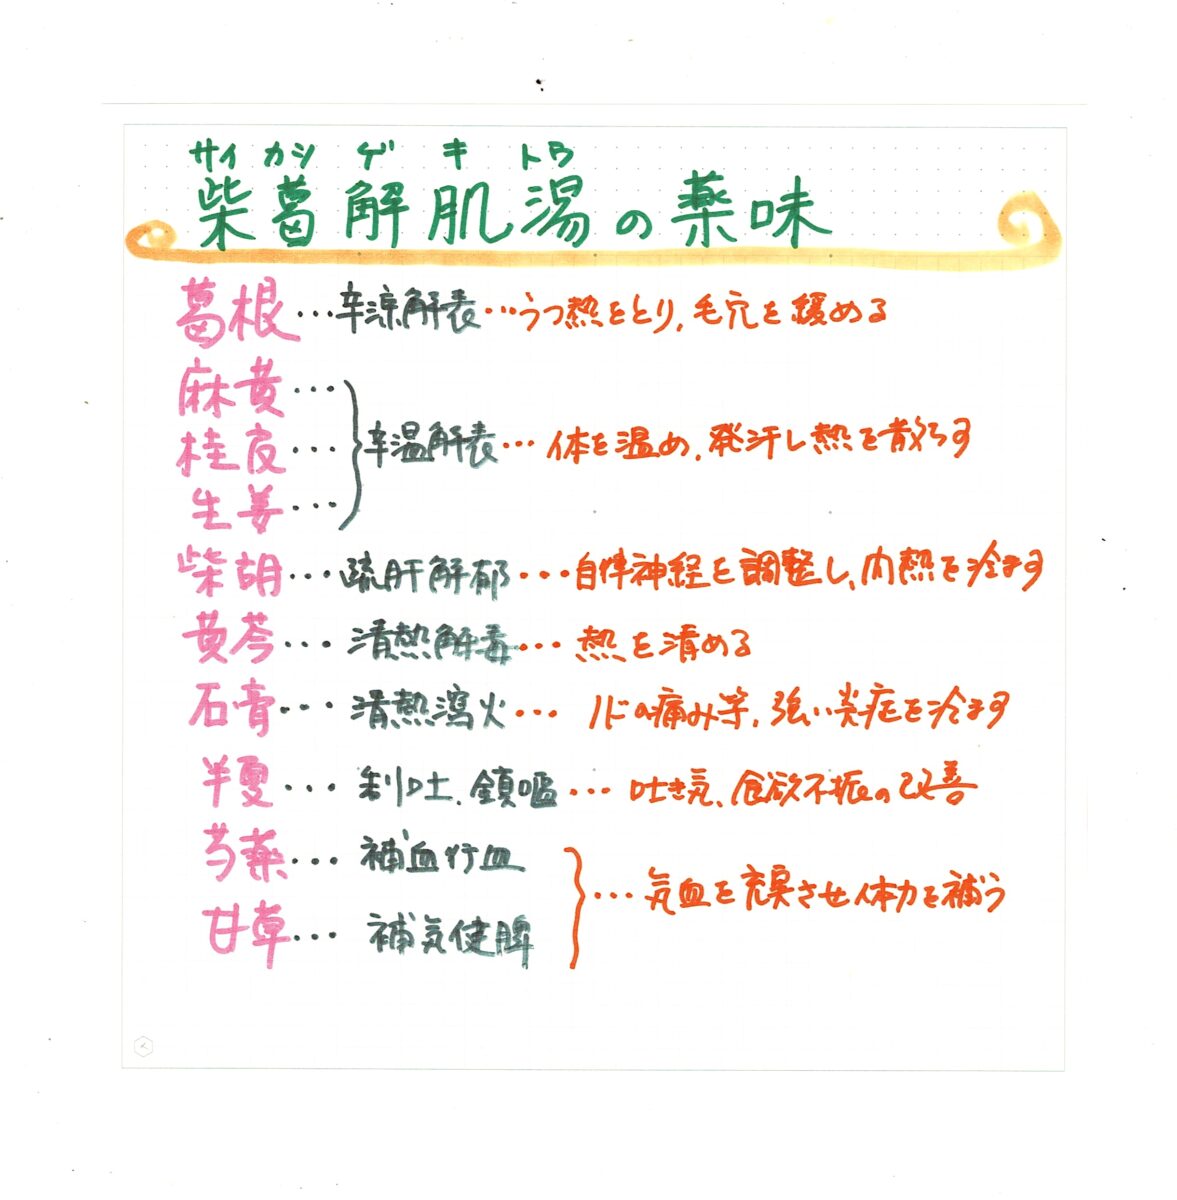 サイ カシ ゲ キ トウ
柴葛解肌湯の薬味
葛根…辛涼解表…うつ熱をとり、毛穴を緩める
麻黄…
桂皮…辛温解表…体を温め、発汗し熱を散らす
生姜…
柴胡…疏肝解郁…自律神経を調整し、内熱を冷ます
黄芩…清熱解毒…熱を清める
石膏…清熱瀉火…ノドの痛み等、強い炎症を冷ます
半夏…制吐、鎮嘔…吐き気、食欲不振の改善
芍薬…補血行血
…気血を充実させ体力を補う
甘草…補気健脾